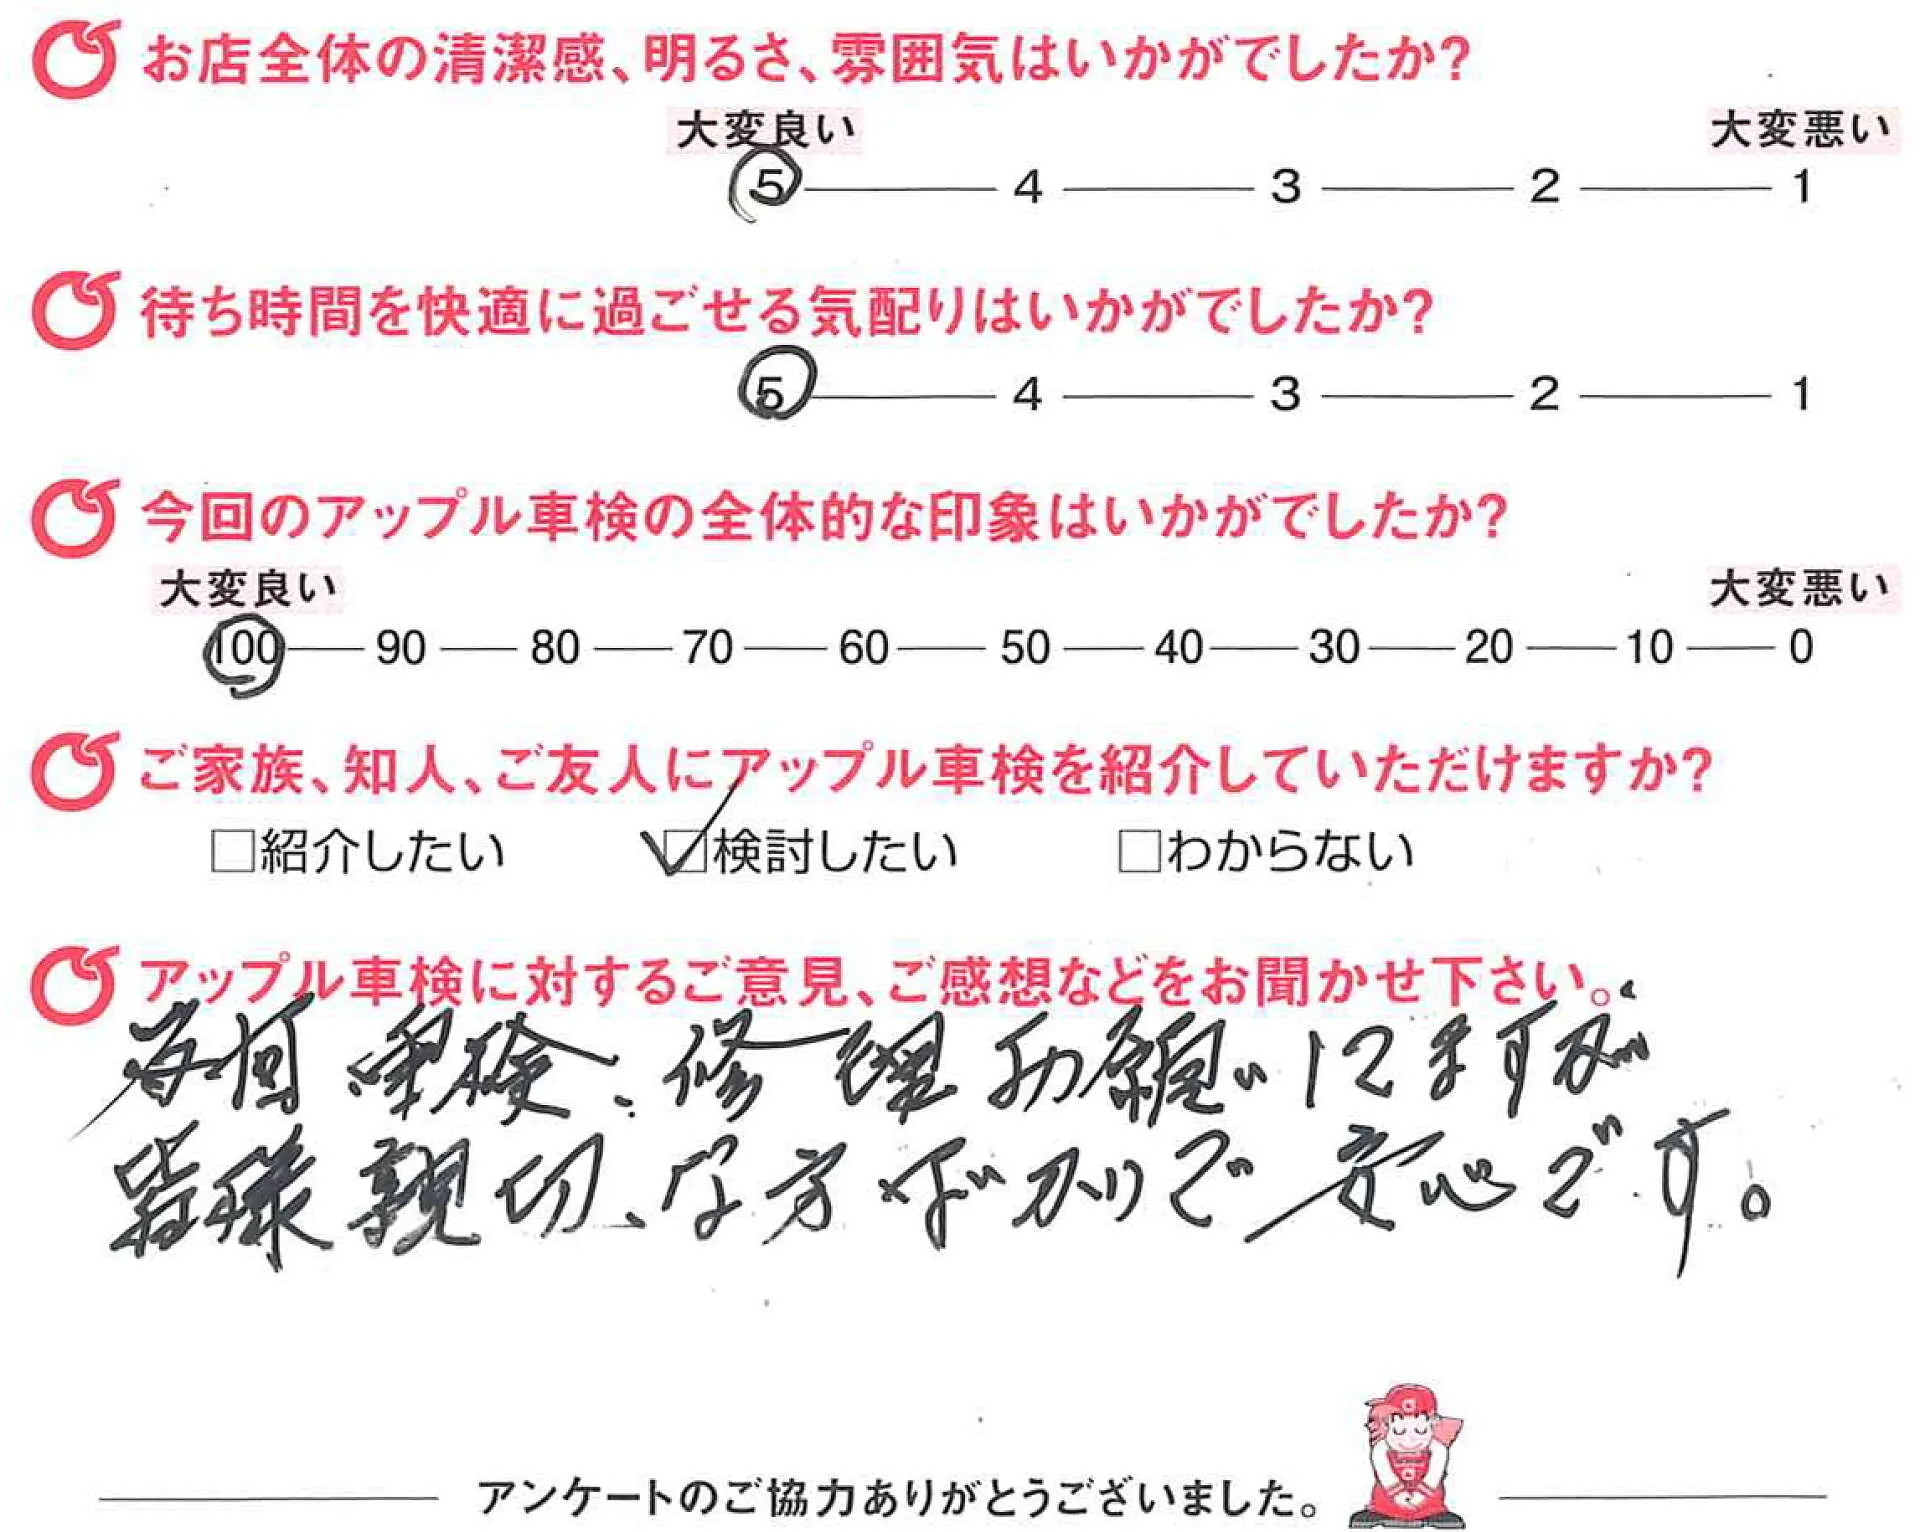 お店全体の清潔感、明るさ、雰囲気はいかがでしたか?
大変良い 大変悪い
5 4 3 2 1
待ち時間を快適に過ごせる気配りはいかがでしたか?
5 4 3 2 1
今回のアップル車検の全体的な印象はいかがでしたか?
大変良い 大変悪い
100 90 80 70 60 50 40 30 20 10 0
ご家族、知人、ご友人にアップル車検を紹介していただけますか?
□紹介したい ☑検討したい □わからない
アップル車検に対するご意見、ご感想などをお聞かせ下さい。
毎回車検、修理お願いしてますが
皆様親切な方ばかりで安心です。
アンケートのご協力ありがとうございました。